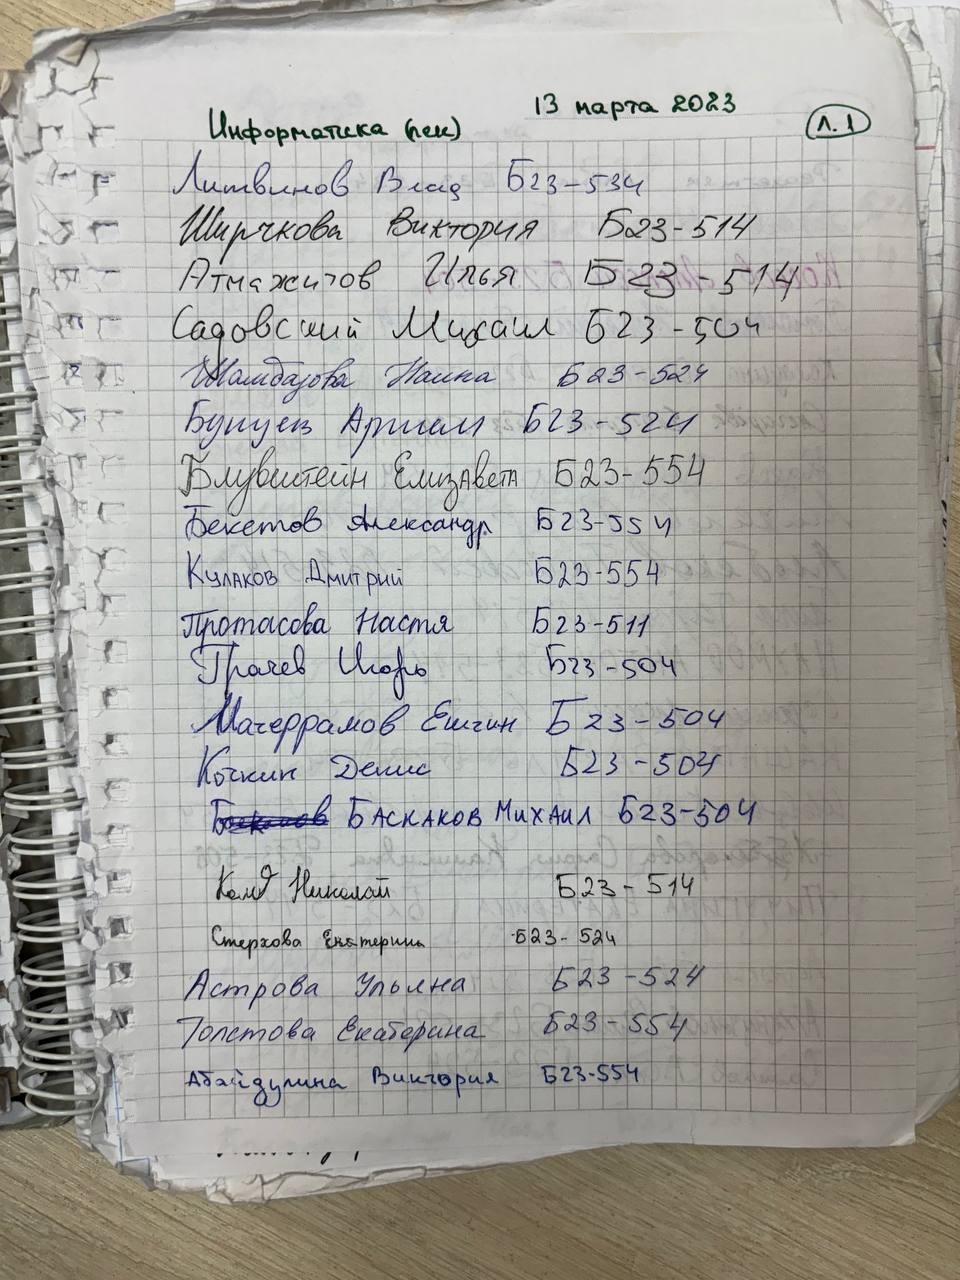 13 марта 2023
Информатика (лек)
Л. 1
Литвинов Влад Б23-534
Ширчкова Виктория Б23-514
Атмажитов Илья Б23-514
Садовский Михаил Б23-504
Наина Б23-524
Бунуев Артем Б23-524
Блувштейн Елизавета Б23-554
Бекетов Александр Б23-554
Кулаков Дмитрий Б23-554
Протасова Настя Б23-511
Грачев Игорь Б23-504
Магеррамов Ельчин Б23-504
Кочкин Денис Б23-504
Баскаков Михаил Б23-504
Николай Б23-514
Стерхова Екатерина Б23-524
Астрова Ульяна Б23-524
Толстова Екатерина Б23-554
Абайдулина Виктория Б23-554